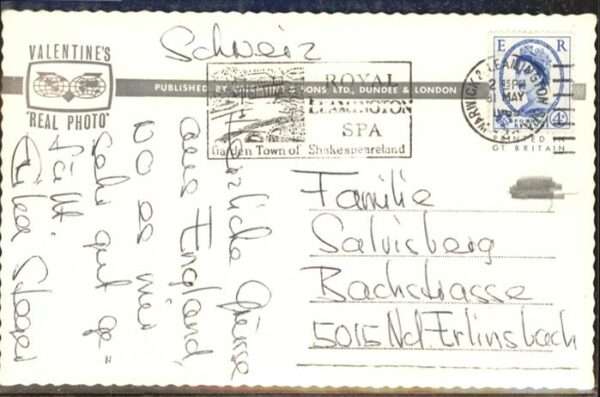 Schweiz
VALENTINE'S
"REAL PHOTO"
PUBLISHED BY VALENTINE & SONS LTD., DUNDEE & LONDON
ROYAL
LEAMINGTON
SPA
Garden Town of Shakespeareland
LEAMINGTON SPA
WARWICK
31 MAY
E R
4D
PRINTED IN
GT BRITAIN
Herzliche Grüsse
aus England,
wo es mir
sehr gut ge-
fällt.
Familie
Salvisberg
Bachstrasse
5015 Nd. Erlinsbach